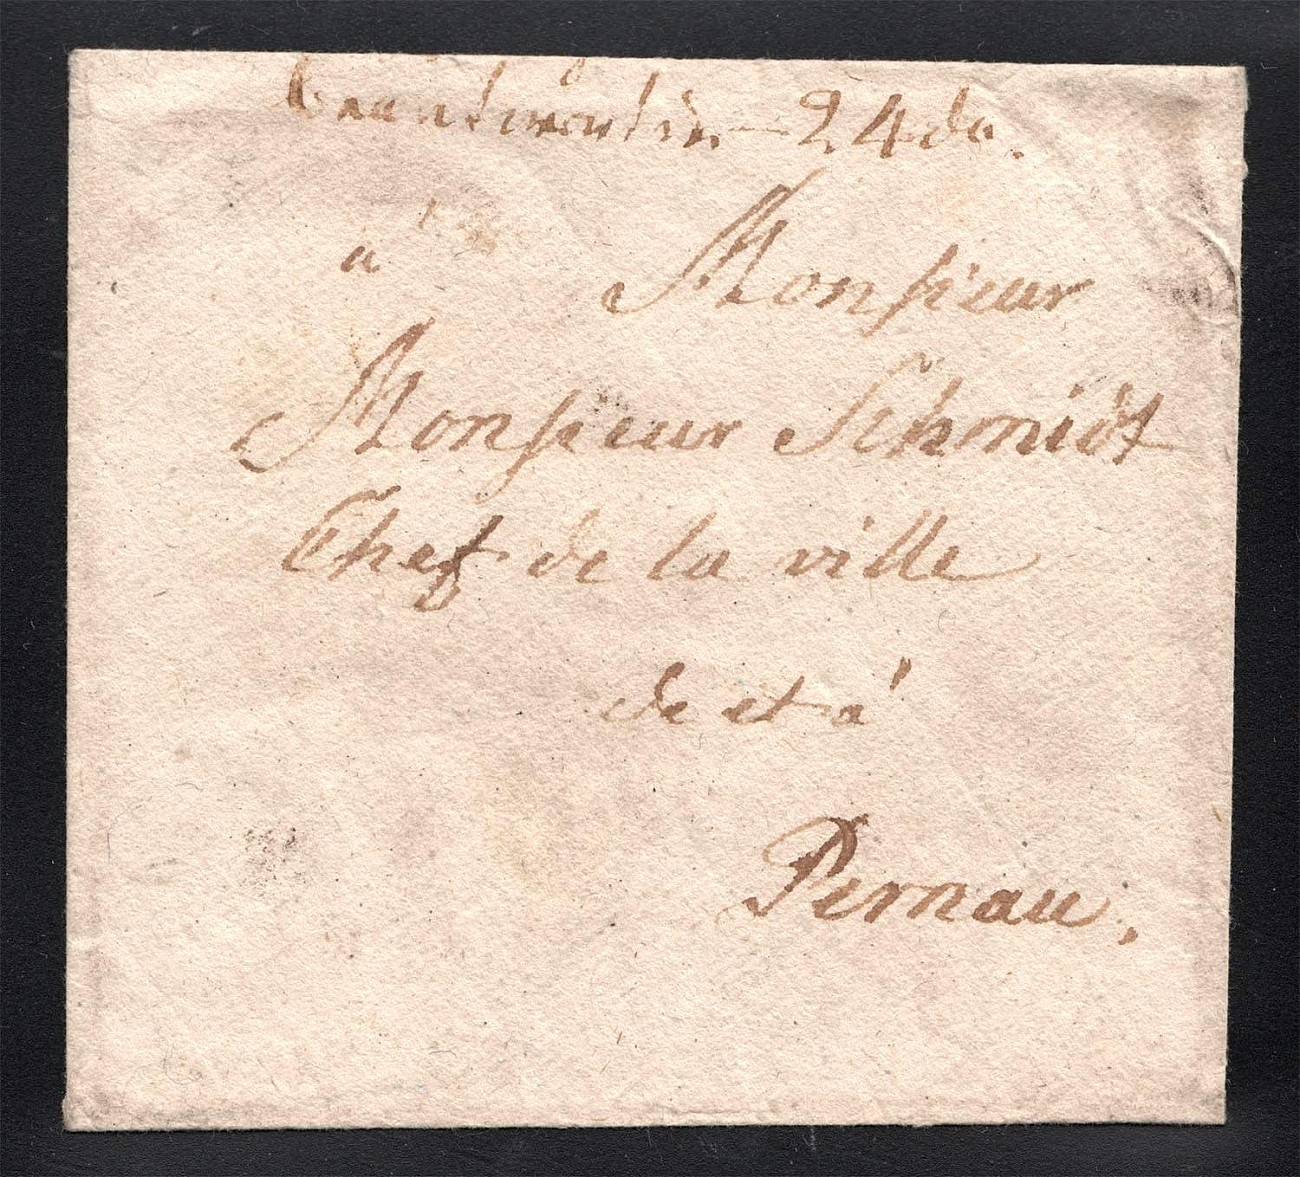 beantwortet. — 24 do.
à Monsieur
Monsieur Schmidt
Chef de la ville
de et à
Pernau,